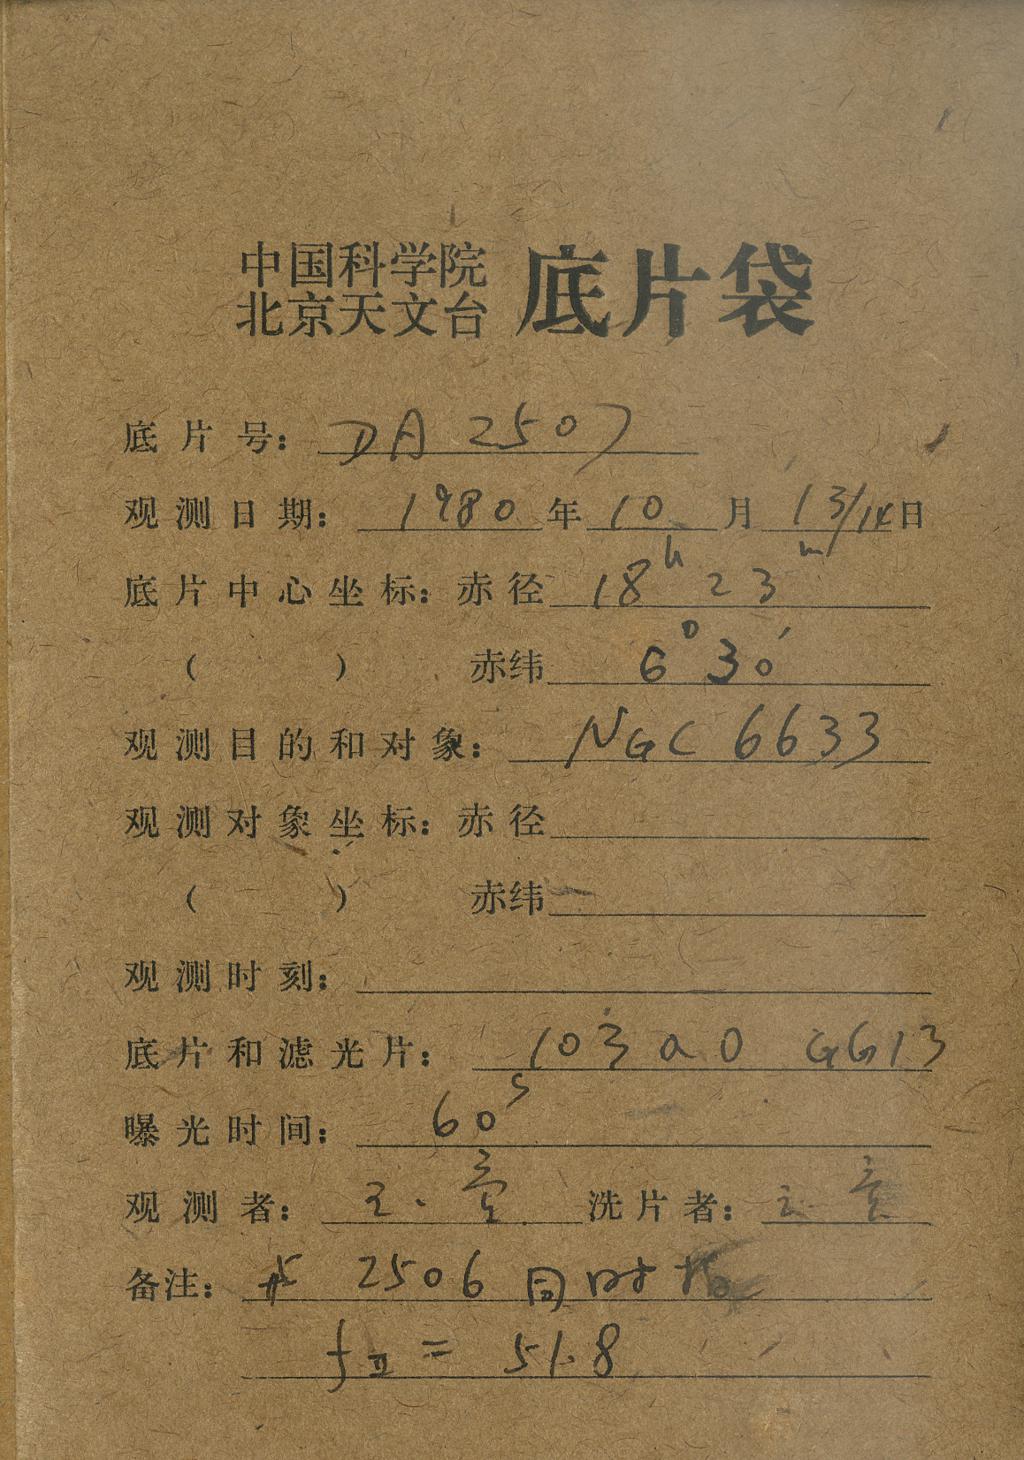 中国科学院
北京天文台 底片袋
底片号： DA 2507
观测日期： 1980 年 10 月 13/14 日
底片中心坐标：赤径 18h 23m
（ ） 赤纬 6° 30′
观测目的和对象： NGC 6633
观测对象坐标：赤径
（ ） 赤纬
观测时刻：
底片和滤光片： 103aO GG13
曝光时间： 60s
观测者： 洗片者：
备注： 2506 同时
fII = 51.8